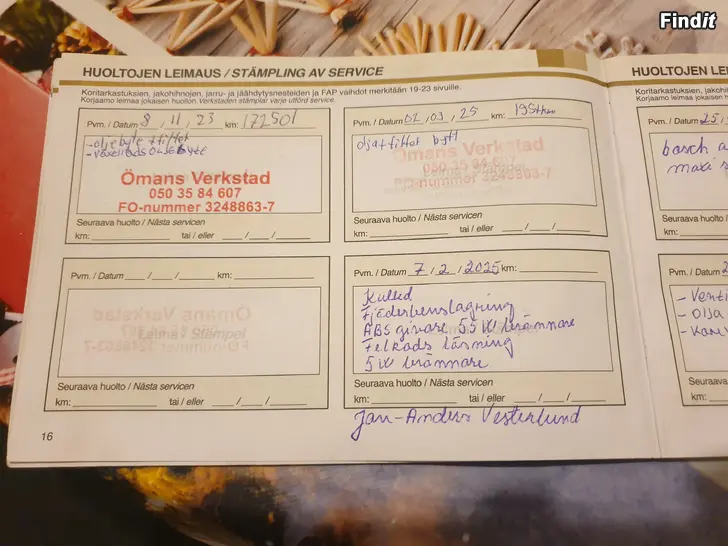 Findit
HUOLTOJEN LEIMAUS / STÄMPLING AV SERVICE
Koritarkastuksien, jakohihnojen, jarru- ja jäähdytysnesteiden ja FAP vaihdot merkitään 19-23 sivuille.
Korjaamo leimaa jokaisen huollon. Verkstaden stämplar varje utförd service.
Pvm. / Datum 8 , 11 , 23 km: 172501
Ömans Verkstad
050 35 84 607
FO-nummer 3248863-7
Seuraava huolto / Nästa servicen
km: tai / eller
Pvm. / Datum 02 , 03 , 25 km:
olja+filter bytt
Ömans Verkstad
050 35 84 607
FO-nummer 3248863-7
Seuraava huolto / Nästa servicen
km: tai / eller
Pvm. / Datum km:
Leima / Stämpel
Seuraava huolto / Nästa servicen
km: tai / eller
Pvm. / Datum 7 / 2 / 2025 km:
Kulled
Fjäderbenslagring
ABS givare 55W brännare
Felkods läsning
5W brännare
Seuraava huolto / Nästa servicen
km: tai / eller
Jan-Anders Vesterlund
16
HUOLTOJEN LEI
Pvm. / Datum 25
bosch
Seuraava huolto
km:
Pvm. / Datum
- Venti
- olja
Seuraava huolto
km: